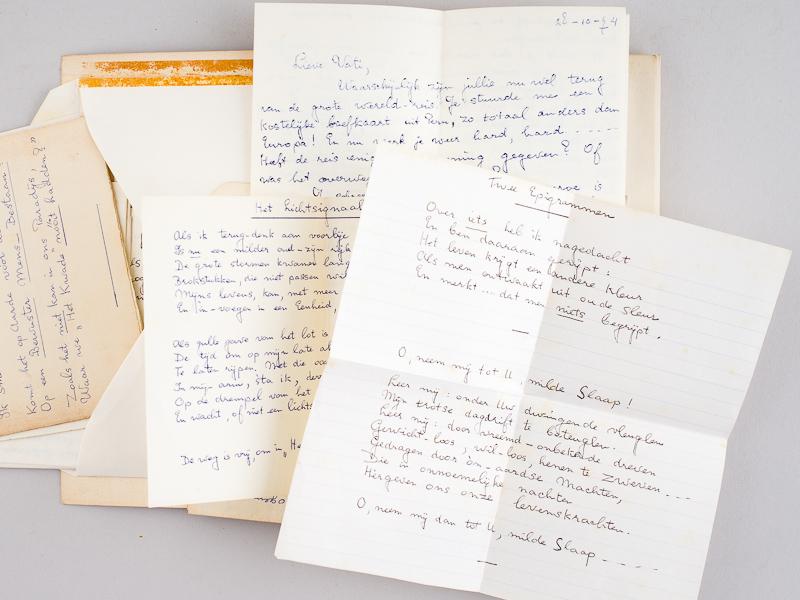 28-10-74
Lieve Vati,
Waarschijnlijk zijn jullie nu wel terug
van de grote wereld-reis. Je stuurde me een
kostelijke briefkaart uit Peru, zo totaal anders dan
Europa! En nu werk je weer hard, hard - - - - -
Heeft de reis enig ning gegeven? Of
was het overwe
is
Het Lichtsignaal
Als ik terug-denk aan voorbije
Is nu een milder oud-zijn rijk
De grote stormen kwamen lang
Brokstukken, die niet passen wi
Mijns levens, kan, met meer
En in-voegen in een Eenheid,
Als gulle gave van het lot is
De tijd om op mijn late
Te laten rijpen. Met die
In mijn arm, sta ik,
Op de drempel van het
En wacht, of niet een lichts
De weg is vrij, om in "He
Twee Epigrammen
Over iets heb ik nagedacht
En ben daaraan gerijpt:
Het leven krijgt een andere kleur
Als men ontwaakt uit oude sleur
En merkt... dat men niets begrijpt.
O, neem mij tot U, milde Slaap!
Leer mij: onder Uw dwingende vleuglen
Mijn trotse dagdrift te beteuglen.
Leer mij: door vreemd-onbekende dreven
Gewicht-loos, wil-loos, henen te zweven...
Gedragen door on-aardse Machten,
Die in onnoemelijke nachten
Hergeven ons onze levenskrachten.
O, neem mij dan tot U, milde Slaap - - - - -
Komt het op Aarde voor de
Op een Bewuster Mens-Bestaan:
Zoals het niet kan in ons Paradijs,
Waar we "Het Kwade" móét mijden?"